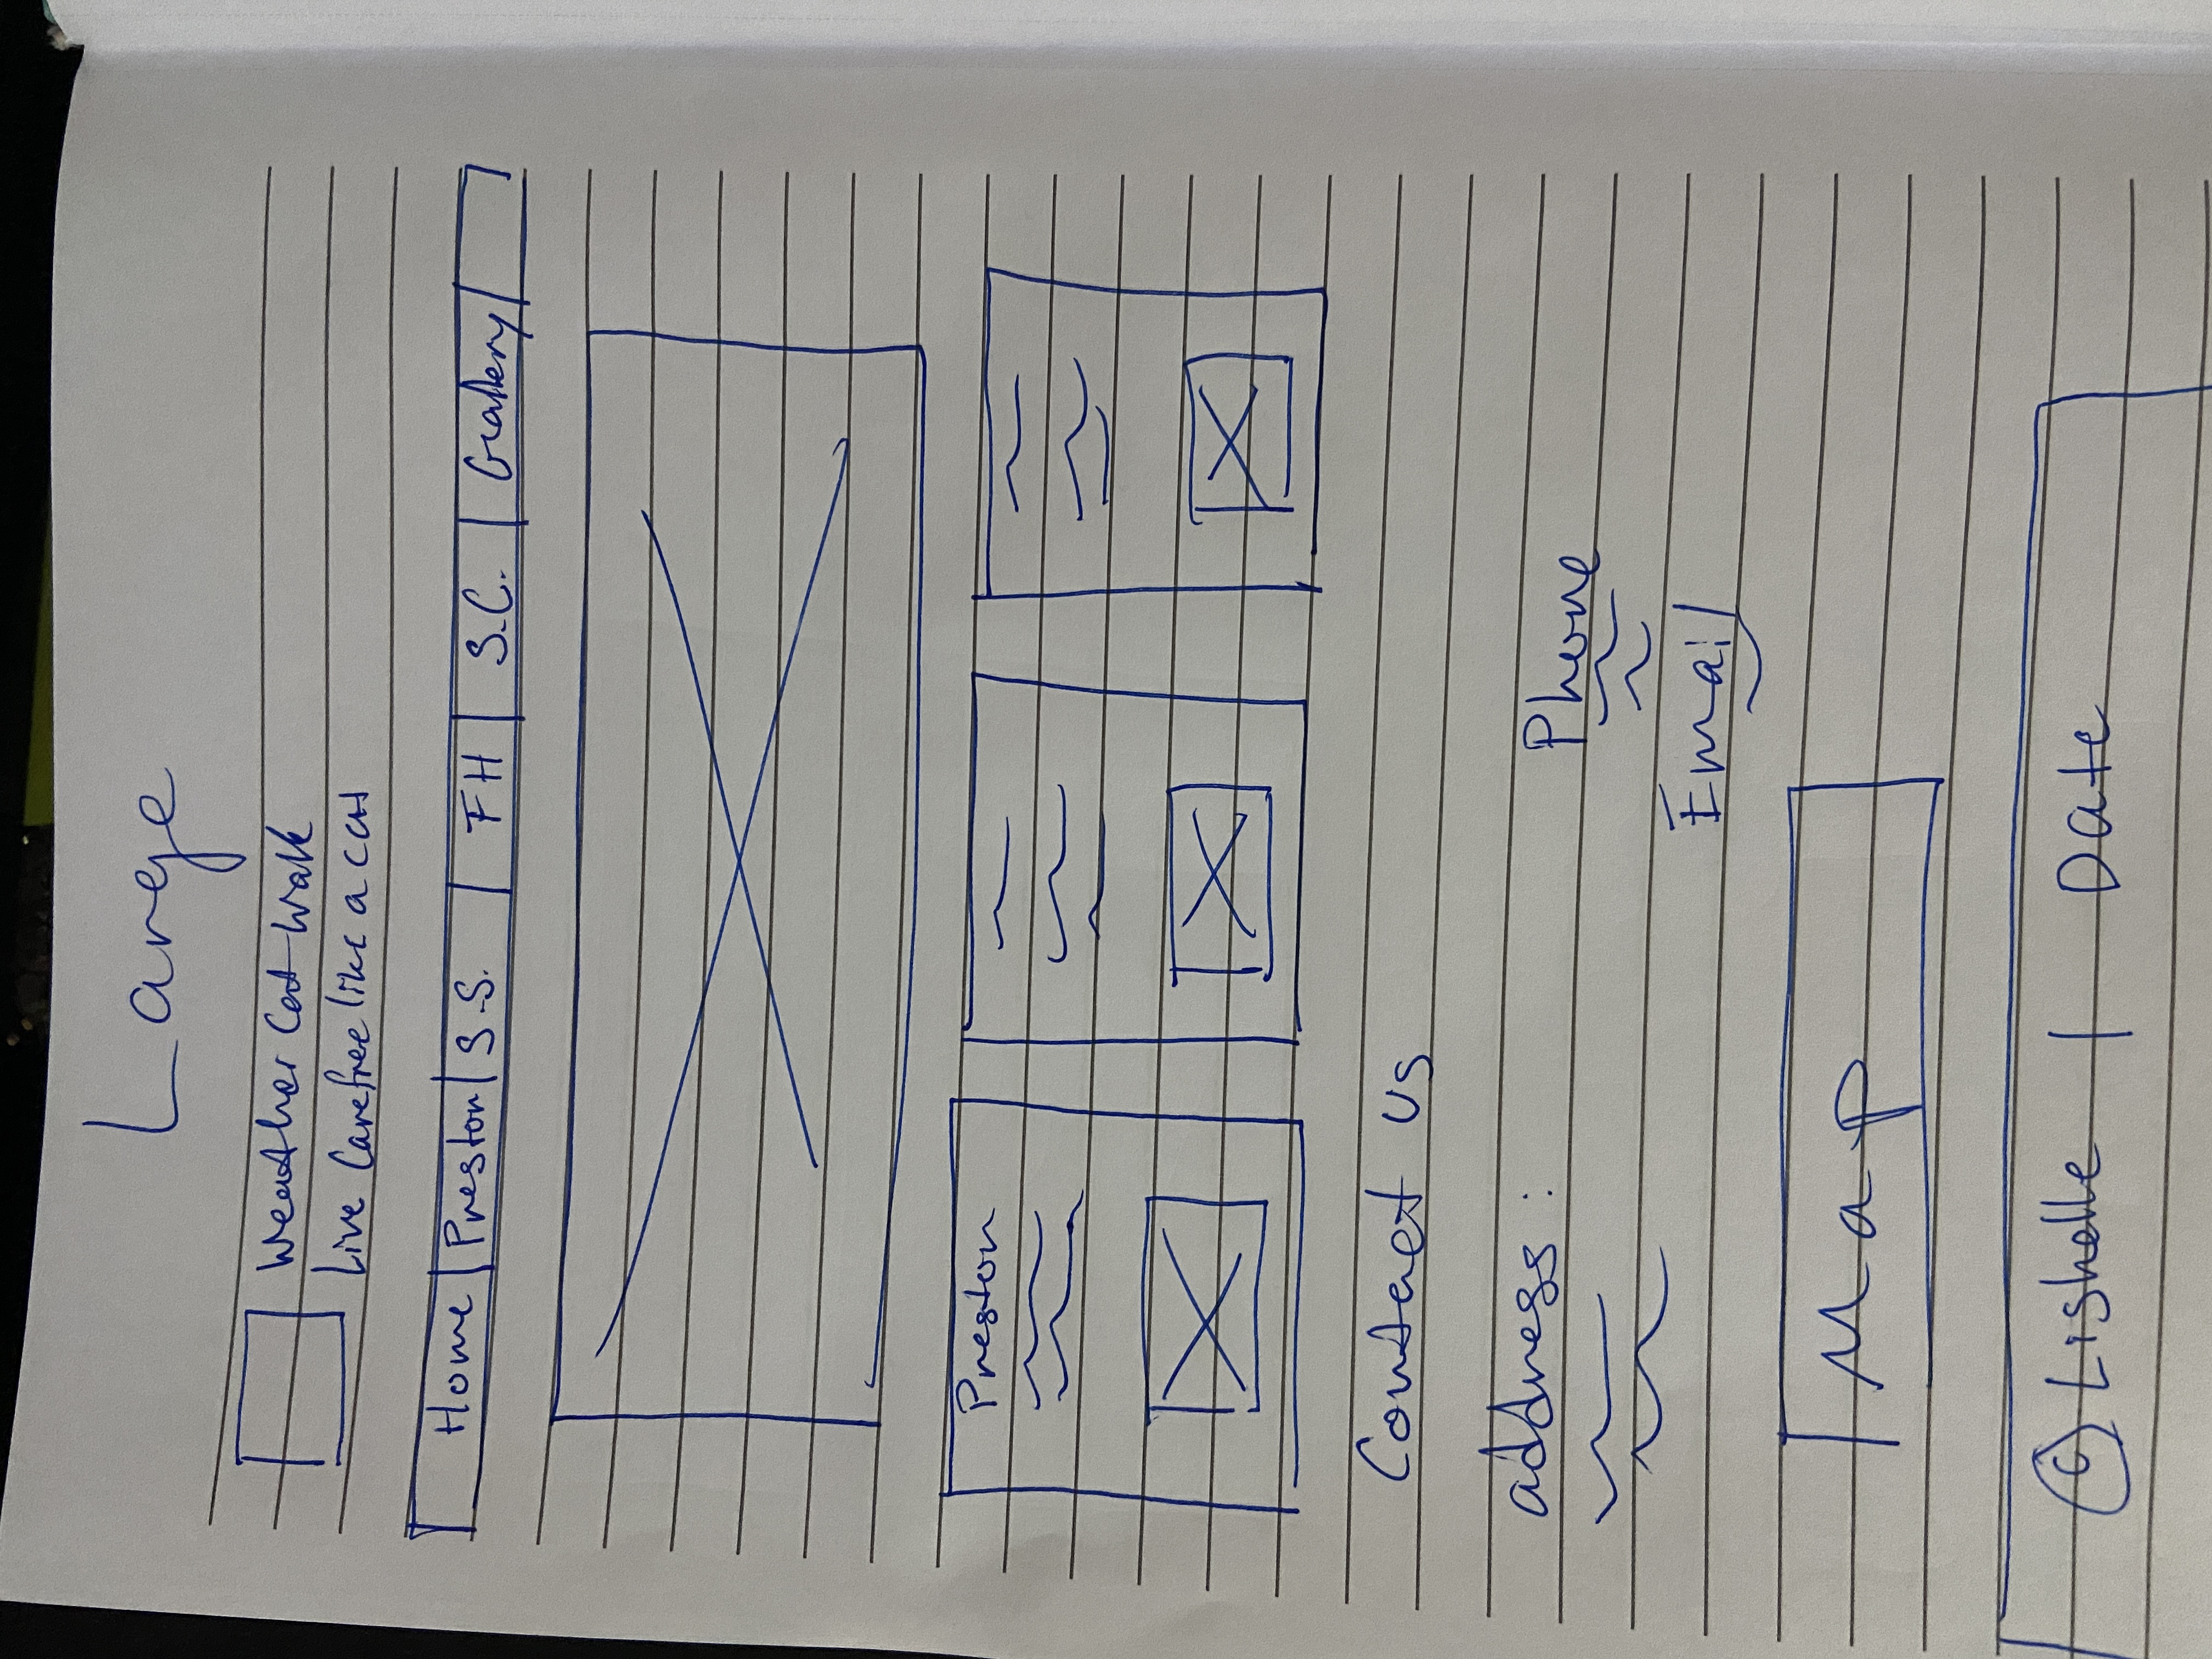 Large
Weather Cat Walk
Live Carefree like a cat
Home Preston S.S. FH S.C. Gallery
Preston
Contact us
address :
Phone
Email
Map
© Lishelle | Date